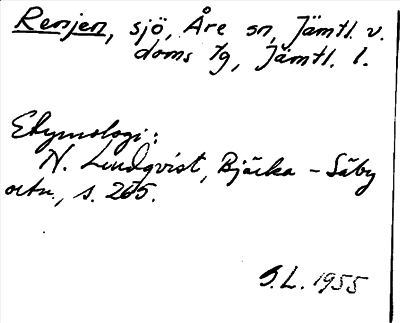 Renjen, sjö, Åre sn, Jämtl. v.
doms tg, Jämtl. l.
Etymologi:
N. Lindqvist, Bjärka - Säby
ortn., s. 265.
S.L. 1955